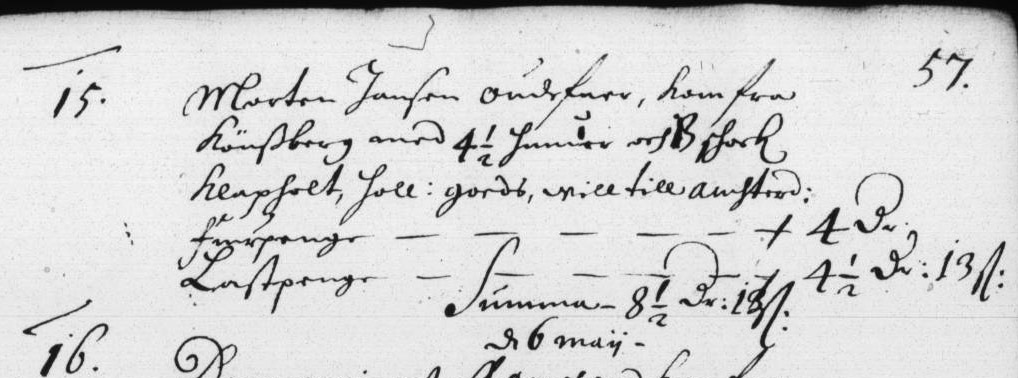 57.
15. Morten Jansen oudesner, kom fra
Könßberg med 4½ hunder och 13 schock
klapholt, holl: goeds, will till amsterd:
fuirpenge — — — — — — + 4 Dr.
Lastpenge — — — — — + 4½ Dr: 13 ß:
Summa – 8½ Dr: 13 ß:
di 6 maij –
16.